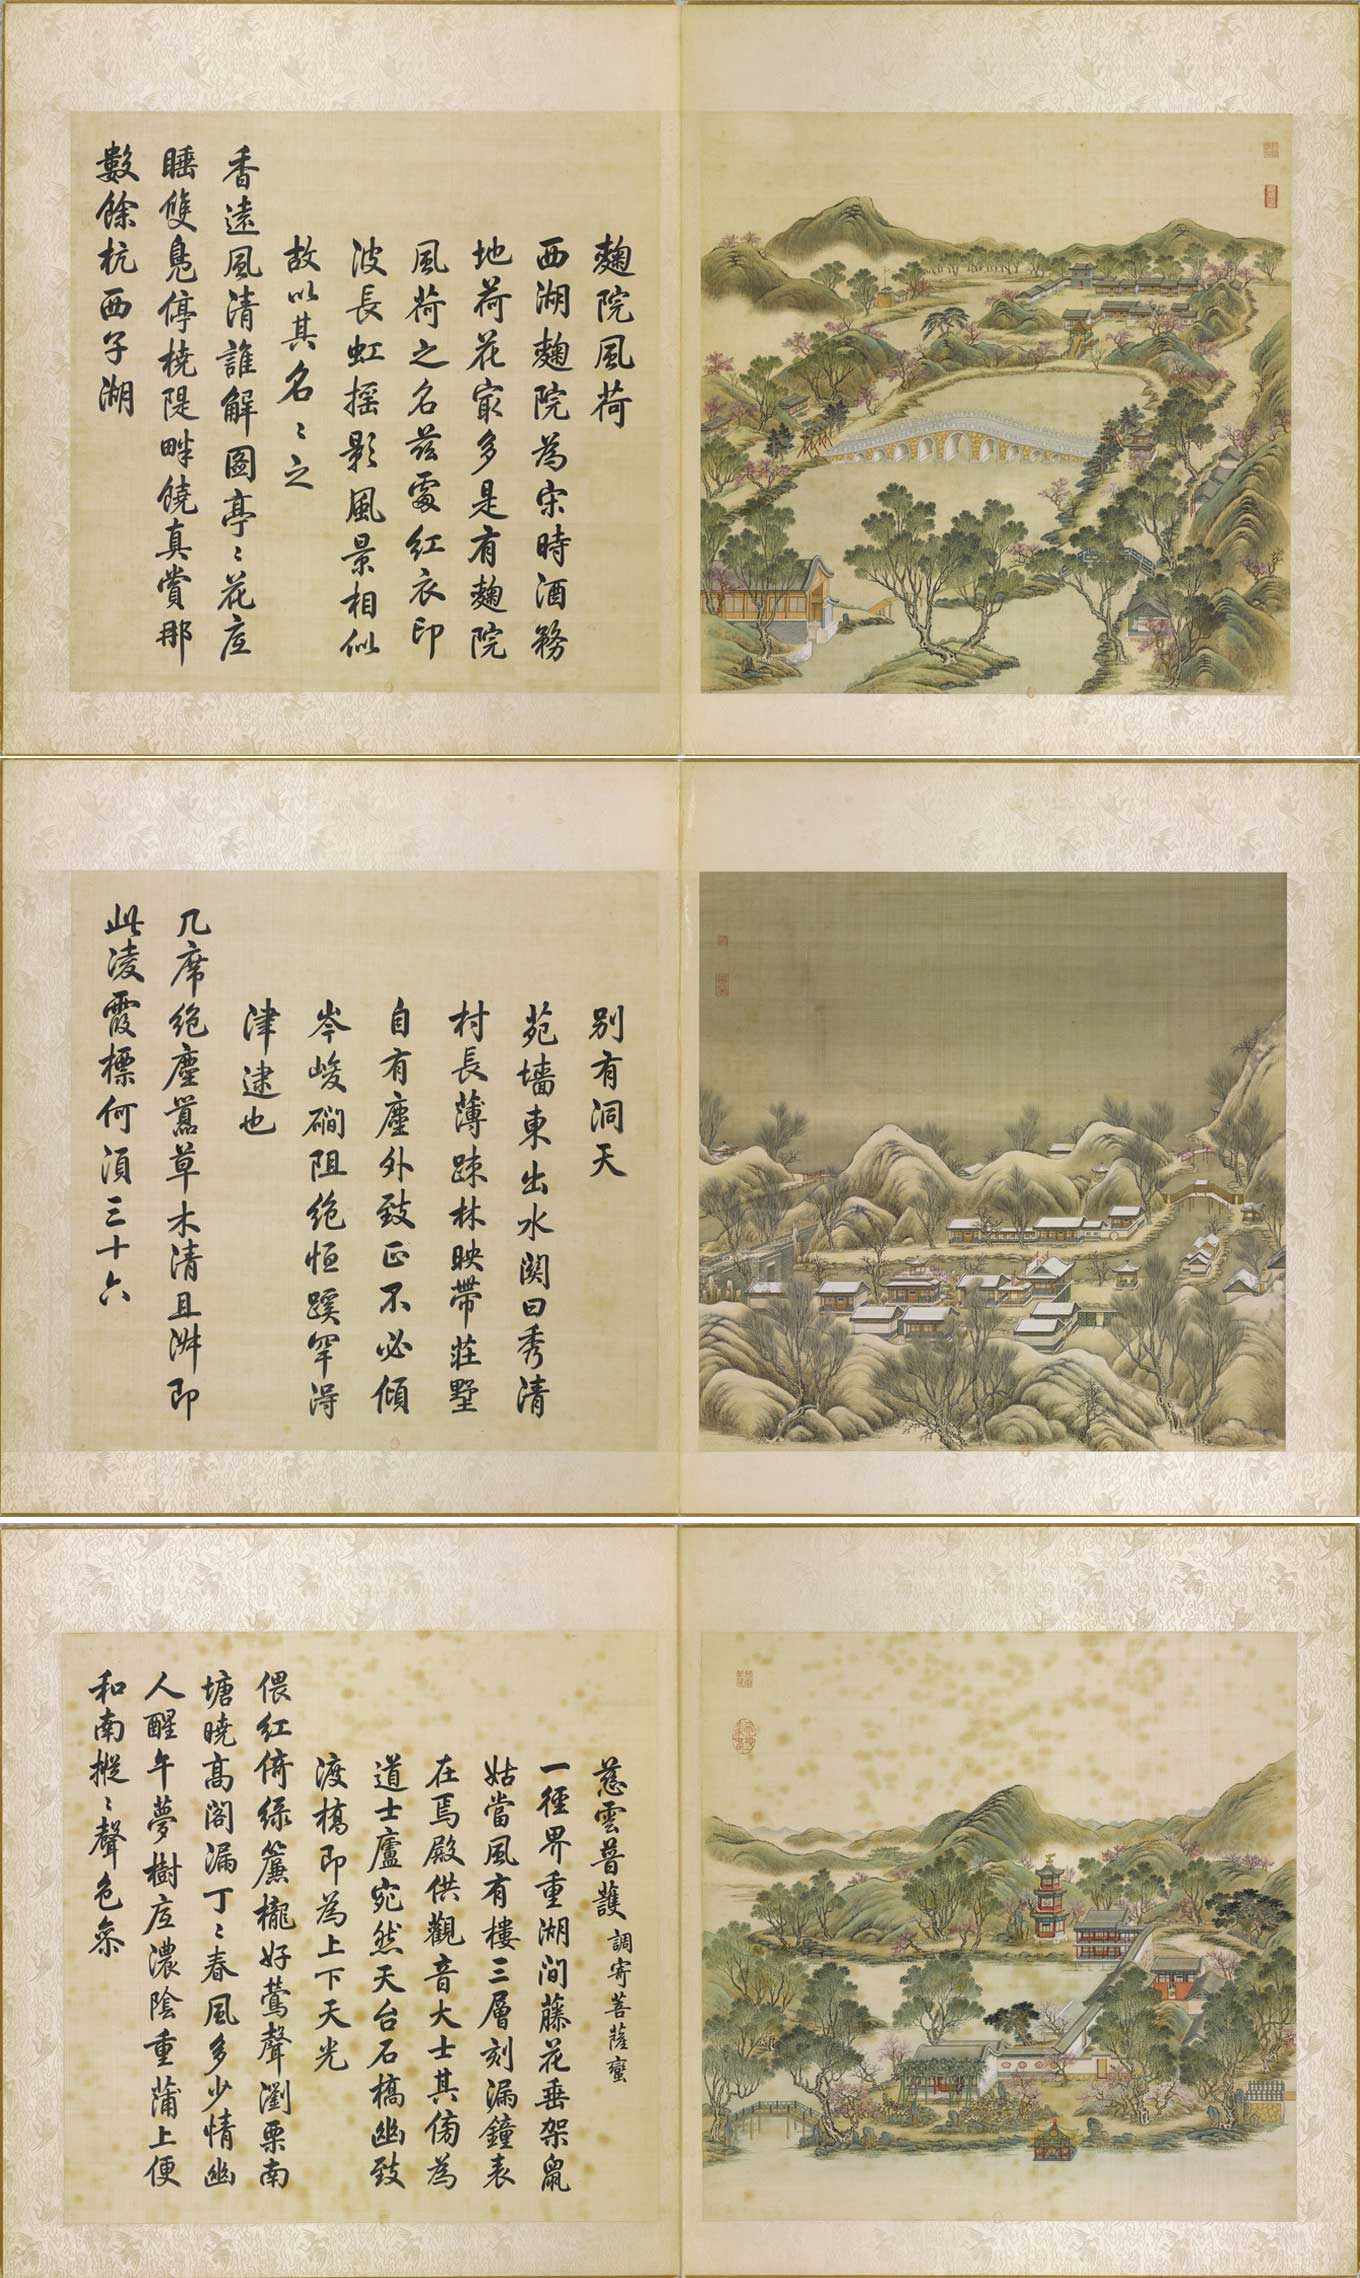 麴院風荷
西湖麴院為宋時酒務
地荷花寂多是有麴院
風荷之名兹處紅衣印
波長虹搖影風景相似
故以其名〻之
香遠風清誰解圖亭〻花底
睡雙鳧停橈隄畔饒真賞那
數餘杭西子湖
別有洞天
苑墻東出水関曰秀清
村長薄疎林映帶莊墅
自有塵外致正不必傾
岑峻磵阻絕恒蹊罕得
津逮也
几席絕塵囂草木清且淋即
此淩霞標何須三十六
慈雲普護 調寄菩薩蠻
一徑界重湖間藤花垂架鼠
姑當風有樓三層刻漏鐘表
在焉殿供觀音大士其傍為
道士廬宛然天台石橋幽致
渡橋即為上下天光
偎紅倚綠簾櫳好鶯聲瀏栗南
塘曉高閣漏丁〻春風多少情幽
人醒午夢樹底濃陰重蒲上便
和南摐〻聲色參